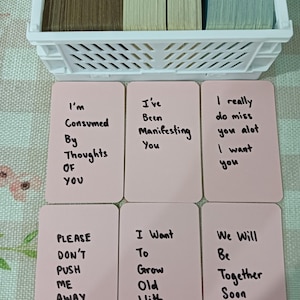 I'm
Consumed
By
Thoughts
OF
YOU
I've
Been
Manifesting
You
I really
do miss
you alot
I want
you
PLEASE
DON'T
PUSH
ME
AWAY
I Want
To
Grow
Old
With
We Will
Be
Together
Soon